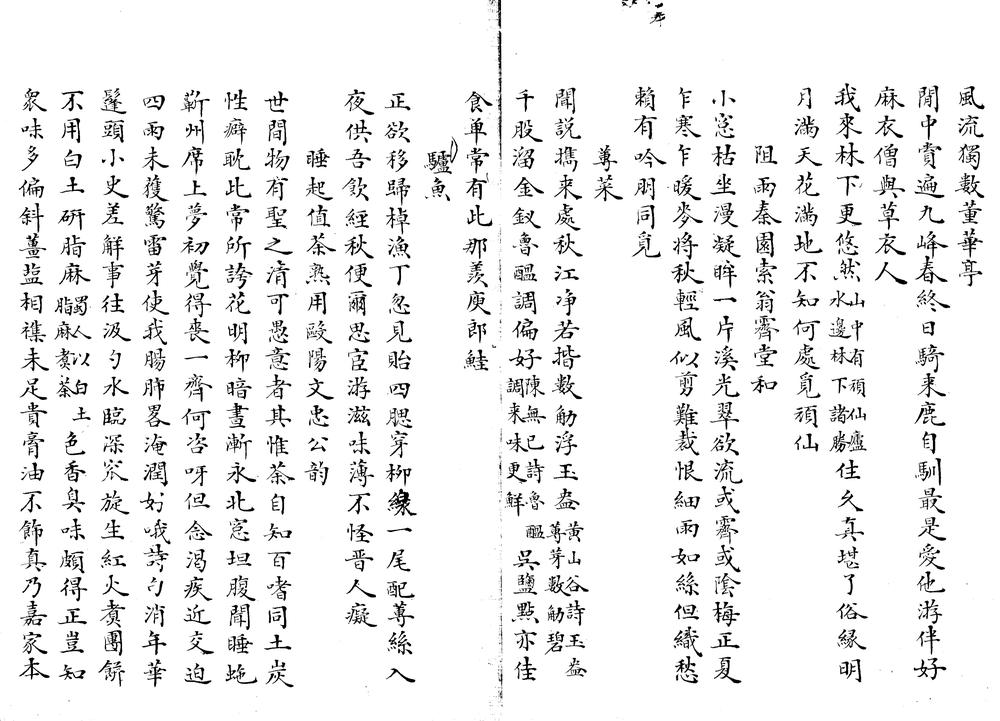 風流獨數董華亭
閒中賞遍九峰春終日騎來鹿自馴最是愛他游伴好
麻衣僧與草衣人
我來林下更悠然山中有頑仙廬水邊林下諸勝住久真堪了俗緣明
月滿天花滿地不知何處覓頑仙
阻雨秦園索翁霽堂和
小窓枯坐漫凝眸一片溪光翠欲流或霽或陰梅正夏
乍寒乍暖麥將秋輕風似剪難裁恨細雨如絲但織愁
賴有吟朋同覓
蓴菜
聞説携來處秋江净若揩數觔浮玉盎黃山谷詩玉盎蓴芽數觔碧
千股溜金釵魯醖調偏好陳無已詩魯醖調來味更鮮吳鹽點亦佳
食单常有此那羨庾郎鮭
驢魚
正欲移歸棹漁丁忽見貽四腮穿柳線一尾配蓴絲入
夜供吾飲經秋便爾思宦游滋味薄不怪晋人癡
睡起值茶熟用歐陽文忠公韵
世間物有聖之清可愚意者其惟茶自知百嗜同土炭
性癖耽此常所誇花明柳暗晝漸永北窓坦腹聞睡虵
蘄州席上夢初覺得喪一齊何咨呀但念渴疾近交迫
四雨未獲驚雷芽使我腸肺畧淹潤好哦詩句消年華
髽頭小史差解事往汲勺水臨深窊旋生紅火煑團餅
不用白土研脂麻蜀人以白土脂麻煑茶色香臭味頗得正豈知
衆味多偏斜薑塩相襍未足貴膏油不飾真乃嘉家本